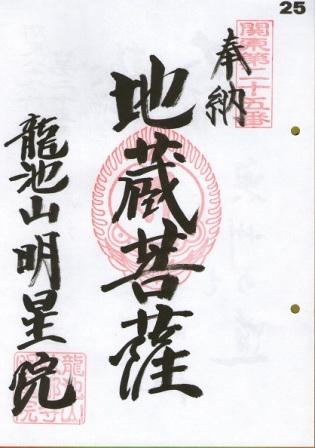 25
関東第二十五番
奉納
地蔵菩薩
龍池山明星院